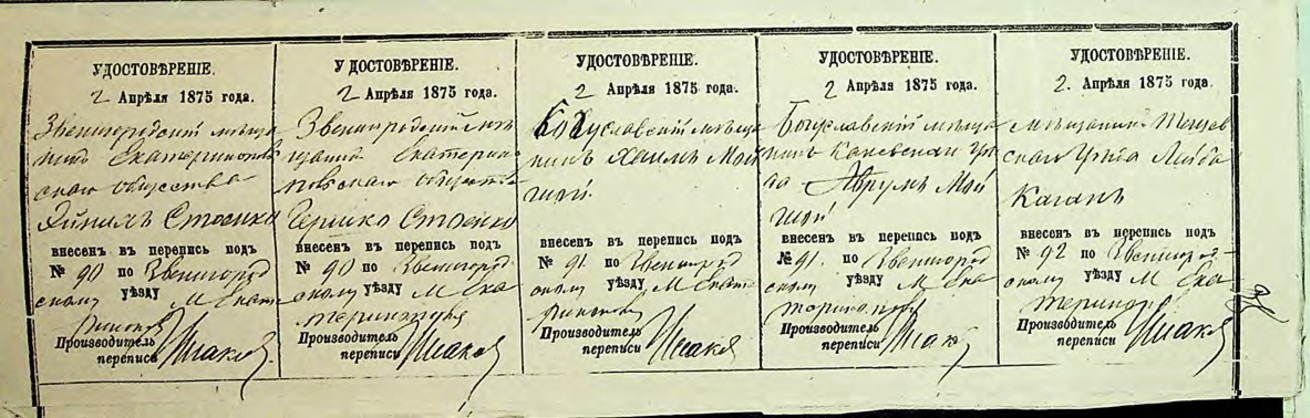 УДОСТОВѢРЕНІЕ.
2 Апрѣля 1875 года.
Звенигородскій мѣща
нинъ Екатеринопол
скаго общества
Стоенко
внесенъ въ перепись подъ
№ 90 по Звенигород
скому уѣзду М Екате
Производитель
переписи
У ДОСТОВѢРЕНІЕ.
2 Апрѣля 1875 года.
Звенигородскій мѣ
щанинъ Екатерин
опольскаго общества
Гершко Стоенко
внесенъ въ перепись подъ
№ 90 по Звенигород
скому уѣзду М Ека
теринополь
Производитель
переписи
УДОСТОВѢРЕНІЕ.
2 Апрѣля 1875 года.
Богуславскій мѣща
нинъ Хаимъ Мой
внесенъ въ перепись подъ
№ 91. по Звенигород
скому уѣзду М Екате
Производитель
переписи
УДОСТОВѢРЕНІЕ.
2 Апрѣля 1875 года.
Богуславскій мѣща
нинъ Каневскаго уѣз
да Аврумъ Мой
внесенъ въ перепись подъ
№ 91. по Звенигород
скому уѣзду М Ека
Производитель
переписи
УДОСТОВѢРЕНІЕ.
2. Апрѣля 1875 года.
мѣщанинъ
скаго уѣзда Лейба
Каганъ
внесенъ въ перепись подъ
№ 92 по Звенигород-
скому уѣзду М Ека
Производитель
переписи